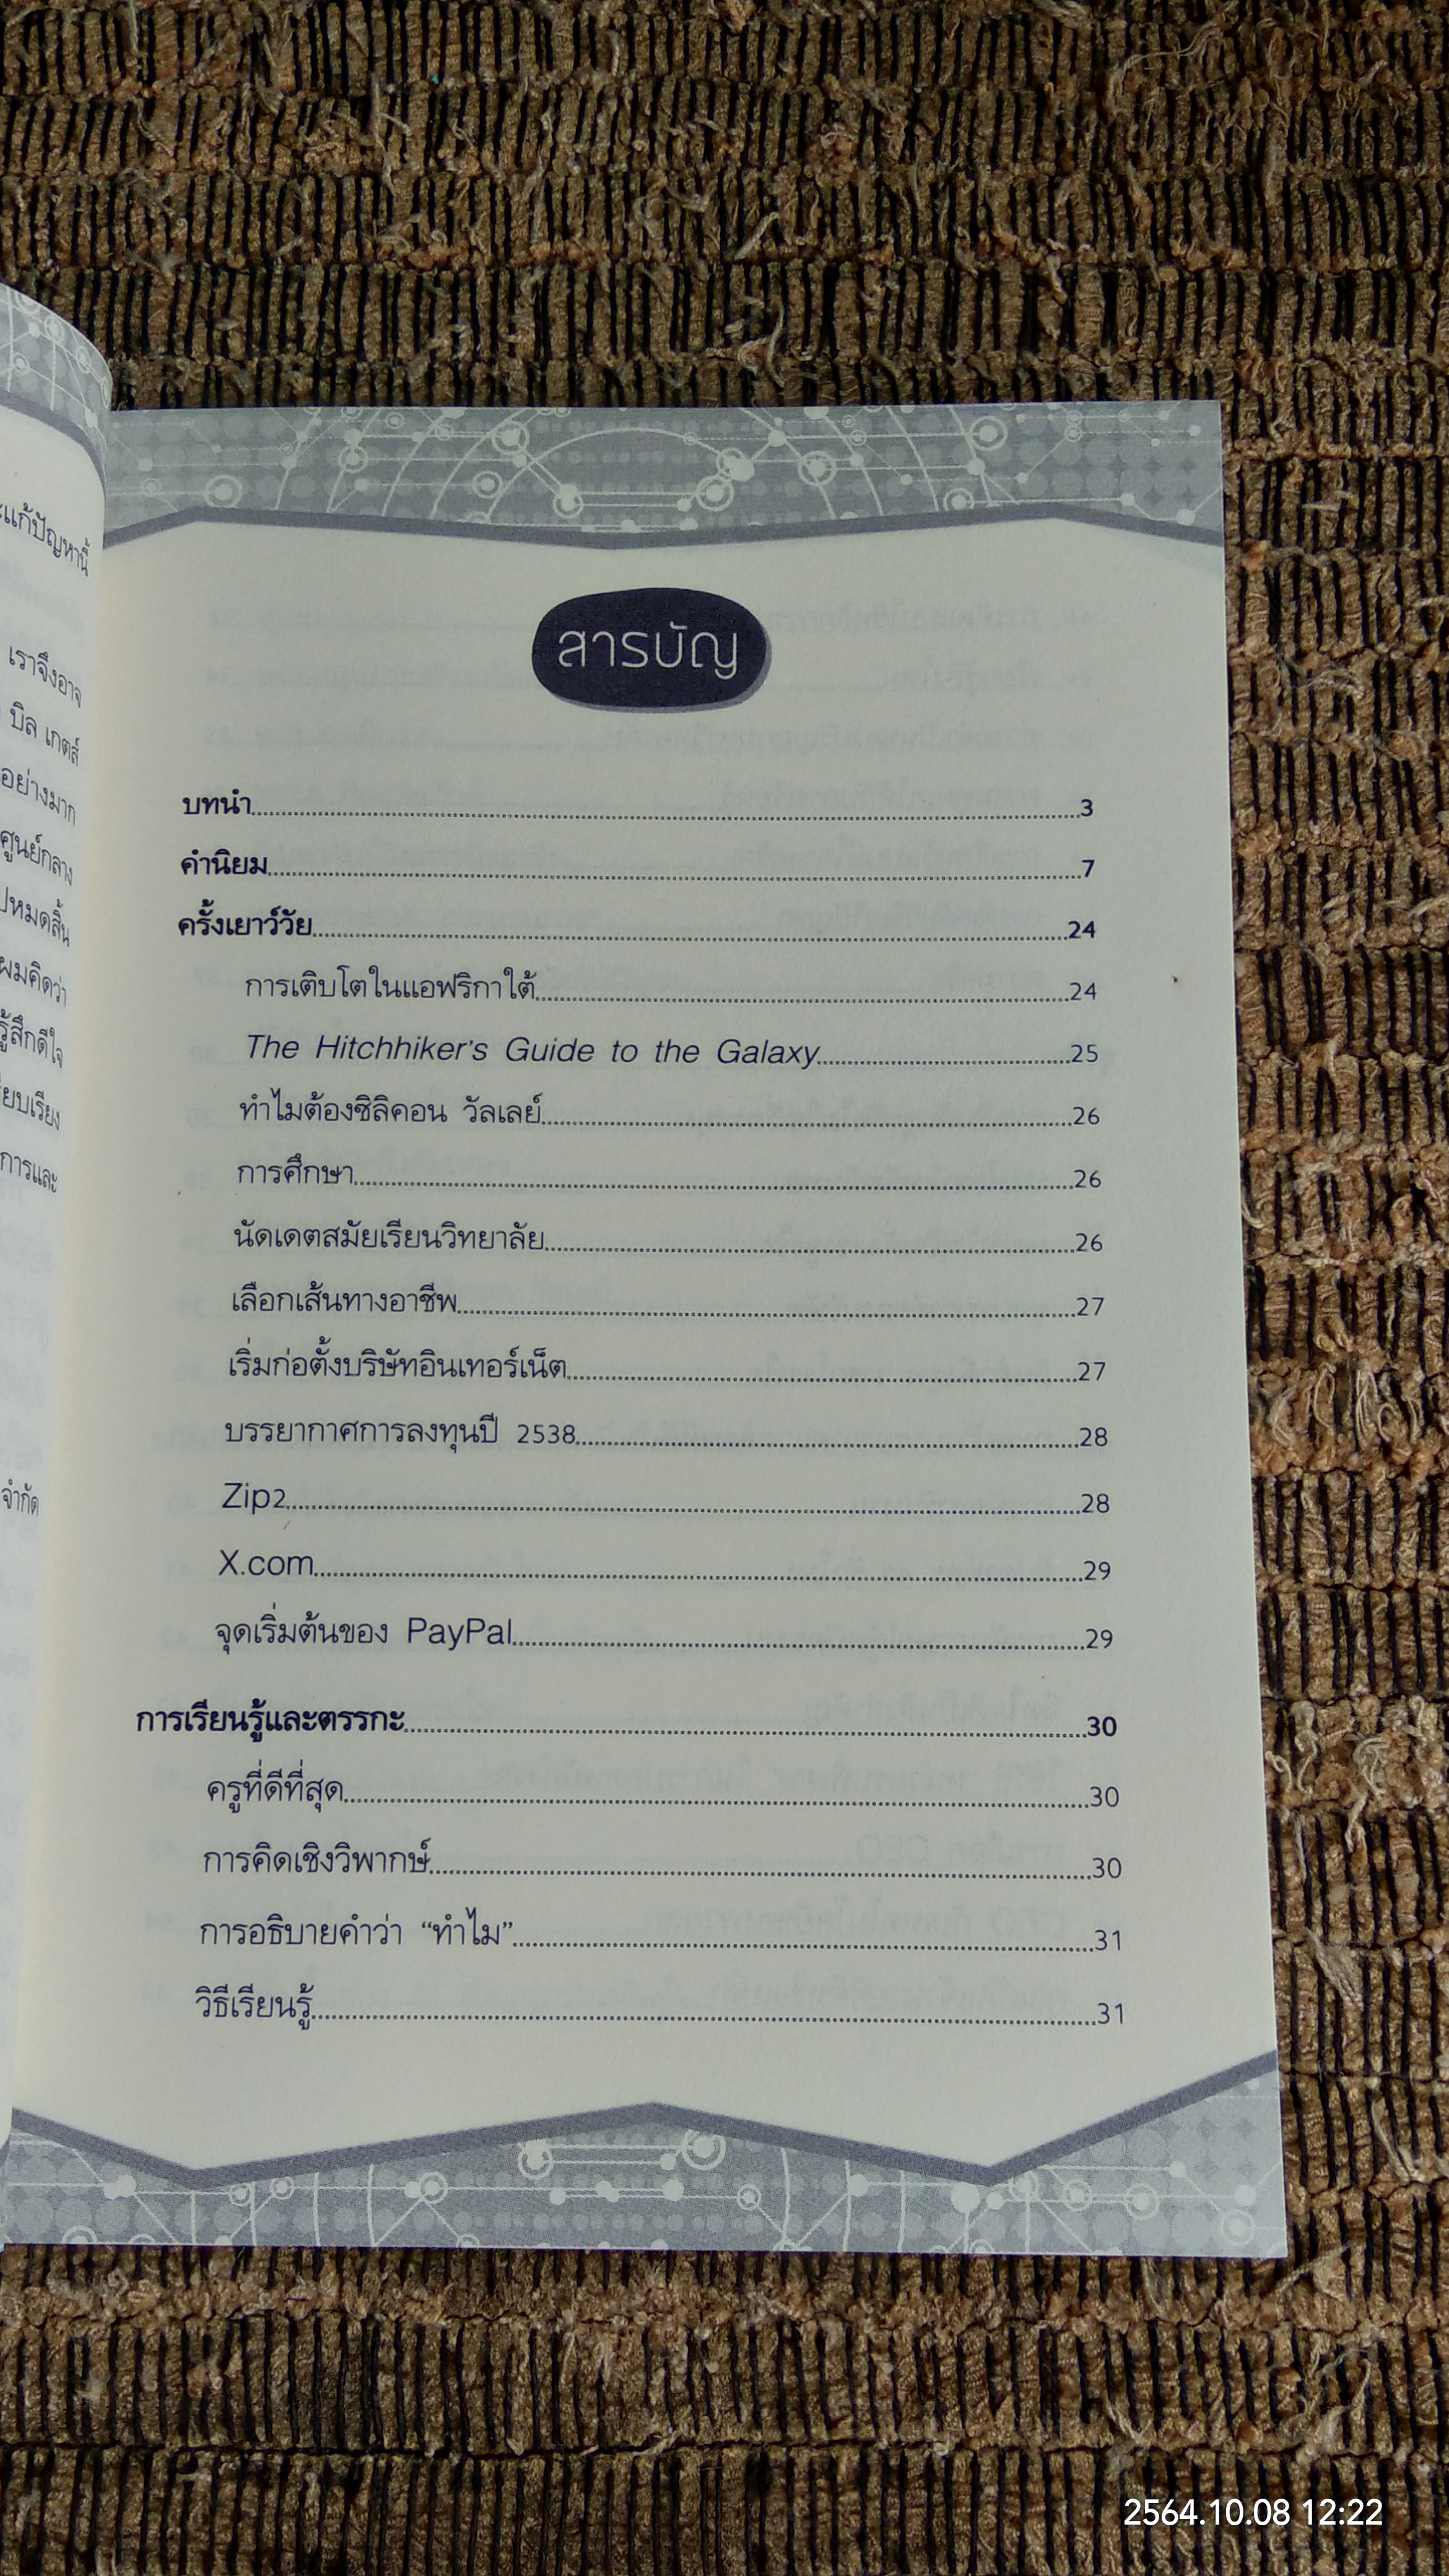 แก้ปัญหานี้
เราจึงอาจ
บิล เกตส์
อย่างมาก
ศูนย์กลาง
หมดสิ้น
ผมคิดว่า
รู้สึกดีใจ
เรียง
การและ
จำกัด
สารบัญ
บทนำ 3
คำนิยม 7
ครั้งเยาว์วัย 24
การเติบโตในแอฟริกาใต้ 24
The Hitchhiker's Guide to the Galaxy 25
ทำไมต้องซิลิคอน วัลเลย์ 26
การศึกษา 26
นัดเดตสมัยเรียนวิทยาลัย 26
เลือกเส้นทางอาชีพ 27
เริ่มก่อตั้งบริษัทอินเทอร์เน็ต 27
บรรยากาศการลงทุนปี 2538 28
Zip2 28
X.com 29
จุดเริ่มต้นของ PayPal 29
การเรียนรู้และตรรกะ 30
ครูที่ดีที่สุด 30
การคิดเชิงวิพากษ์ 30
การอธิบายคำว่า “ทำไม” 31
วิธีเรียนรู้ 31
2564.10.08 12:22